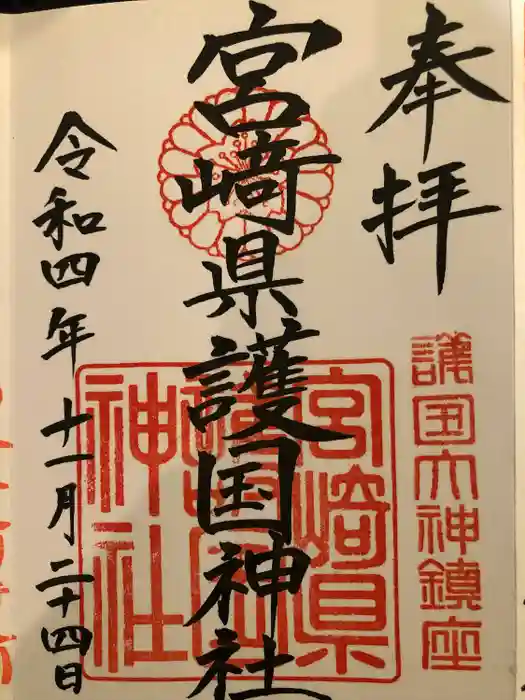 奉拝
護国大神鎮座
宮﨑県護国神社
宮崎県護国神社
令和四年十一月二十四日